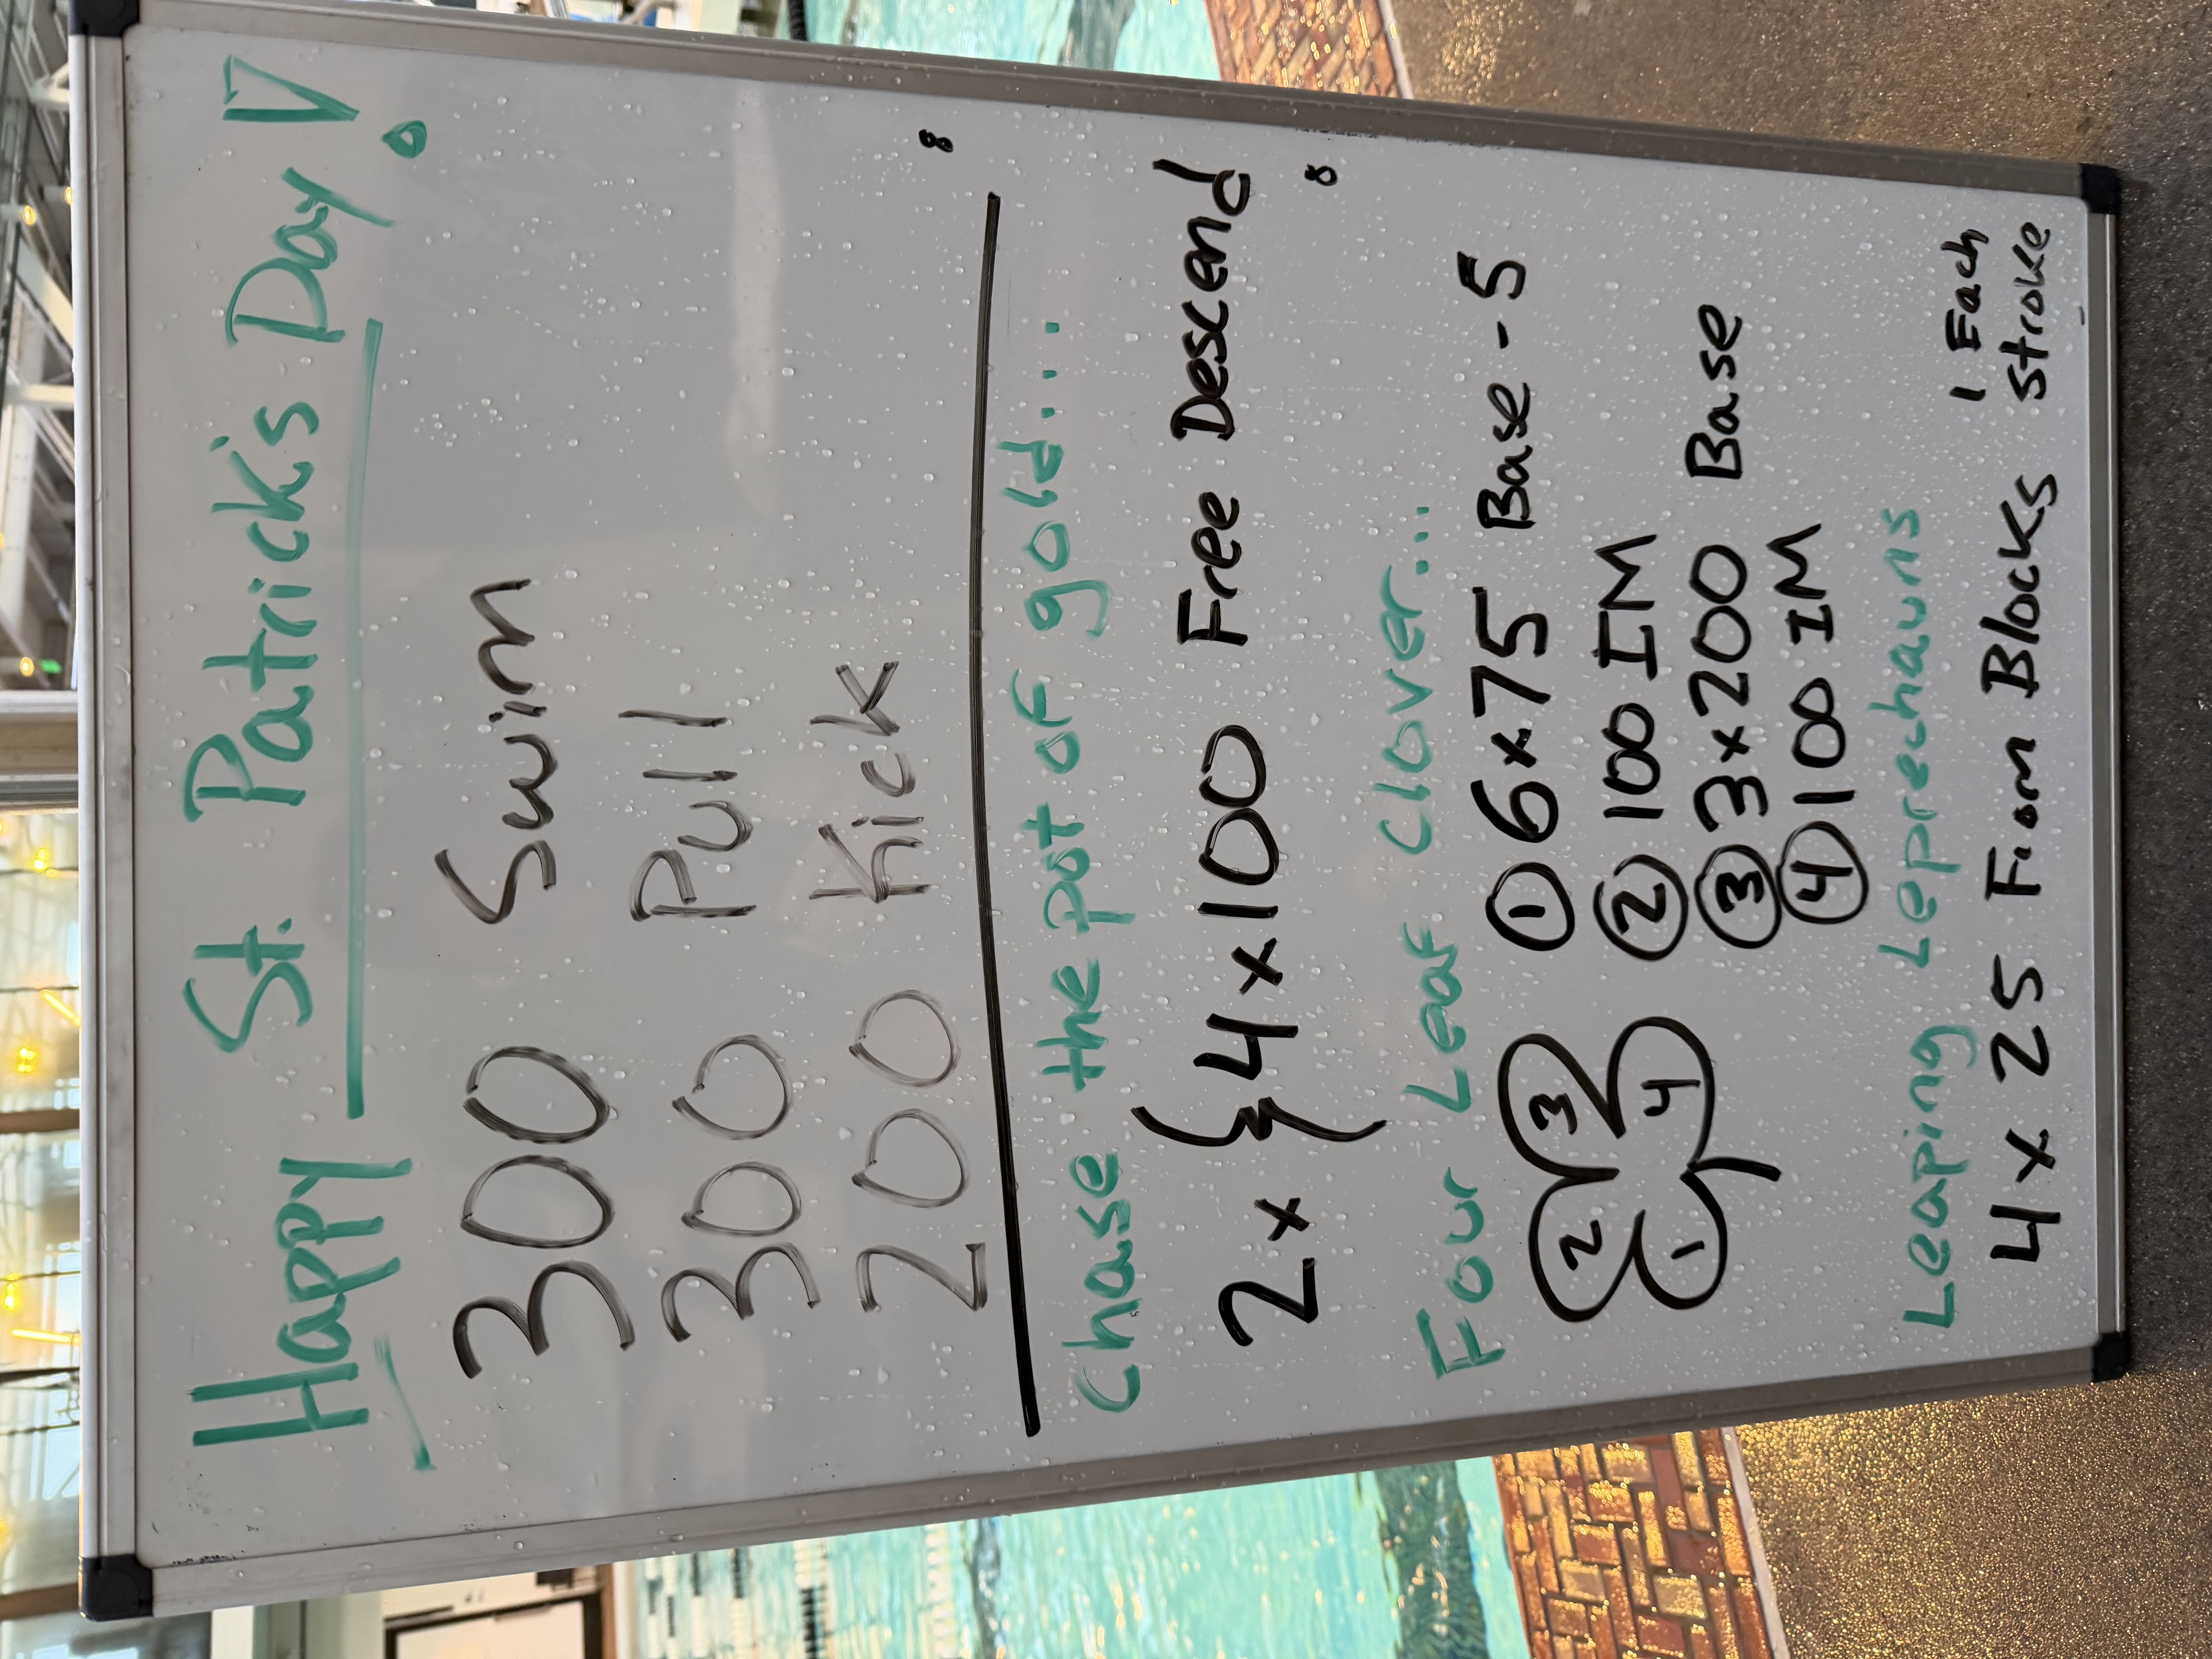 Happy St. Patrick's Day!
300 Swim
300 Pull
200 Kick
8
Chase the pot of gold...
2x { 4x100 Free Descend
8
Four Leaf Clover...
① 6x75 Base - 5
② 100 IM
③ 3x200 Base
④ 100 IM
2 3
1 4
Leaping Leprechauns
4 x 25 From Blocks 1 Each Stroke